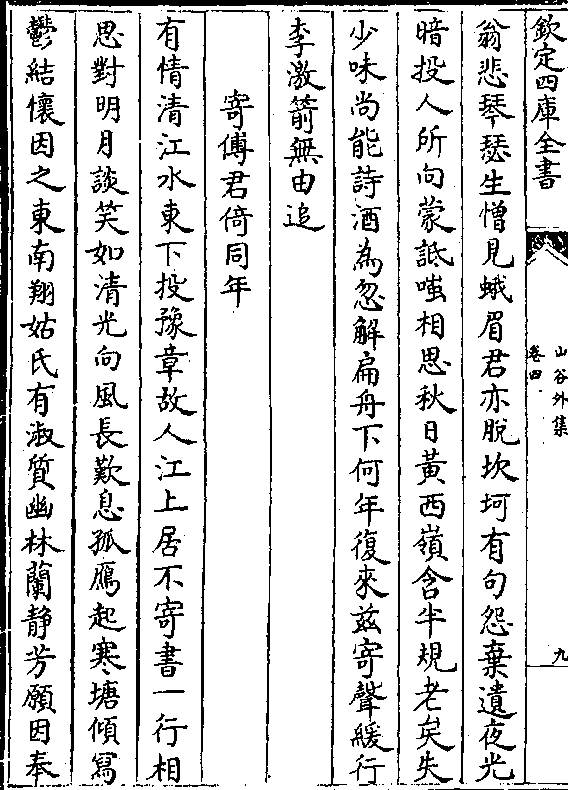 欽定四庫全書
山谷外集
卷四
九
翁悲琴瑟生憎見蛾眉君亦脫坎坷有句怨棄遺夜光
暗投人所向蒙詆嗤相思秋日黃西嶺含半規老矣失
少味尚能詩酒為忽解扁舟下何年復來兹寄聲緩行
李激箭無由追
寄傅君倚同年
有情清江水東下投豫章故人江上居不寄書一行相
思對明月談笑如清光向風長歎息孤鴈起寒塘傾寫
鬱結懷因之東南翔姑氏有淑質幽林蘭静芳願因奉